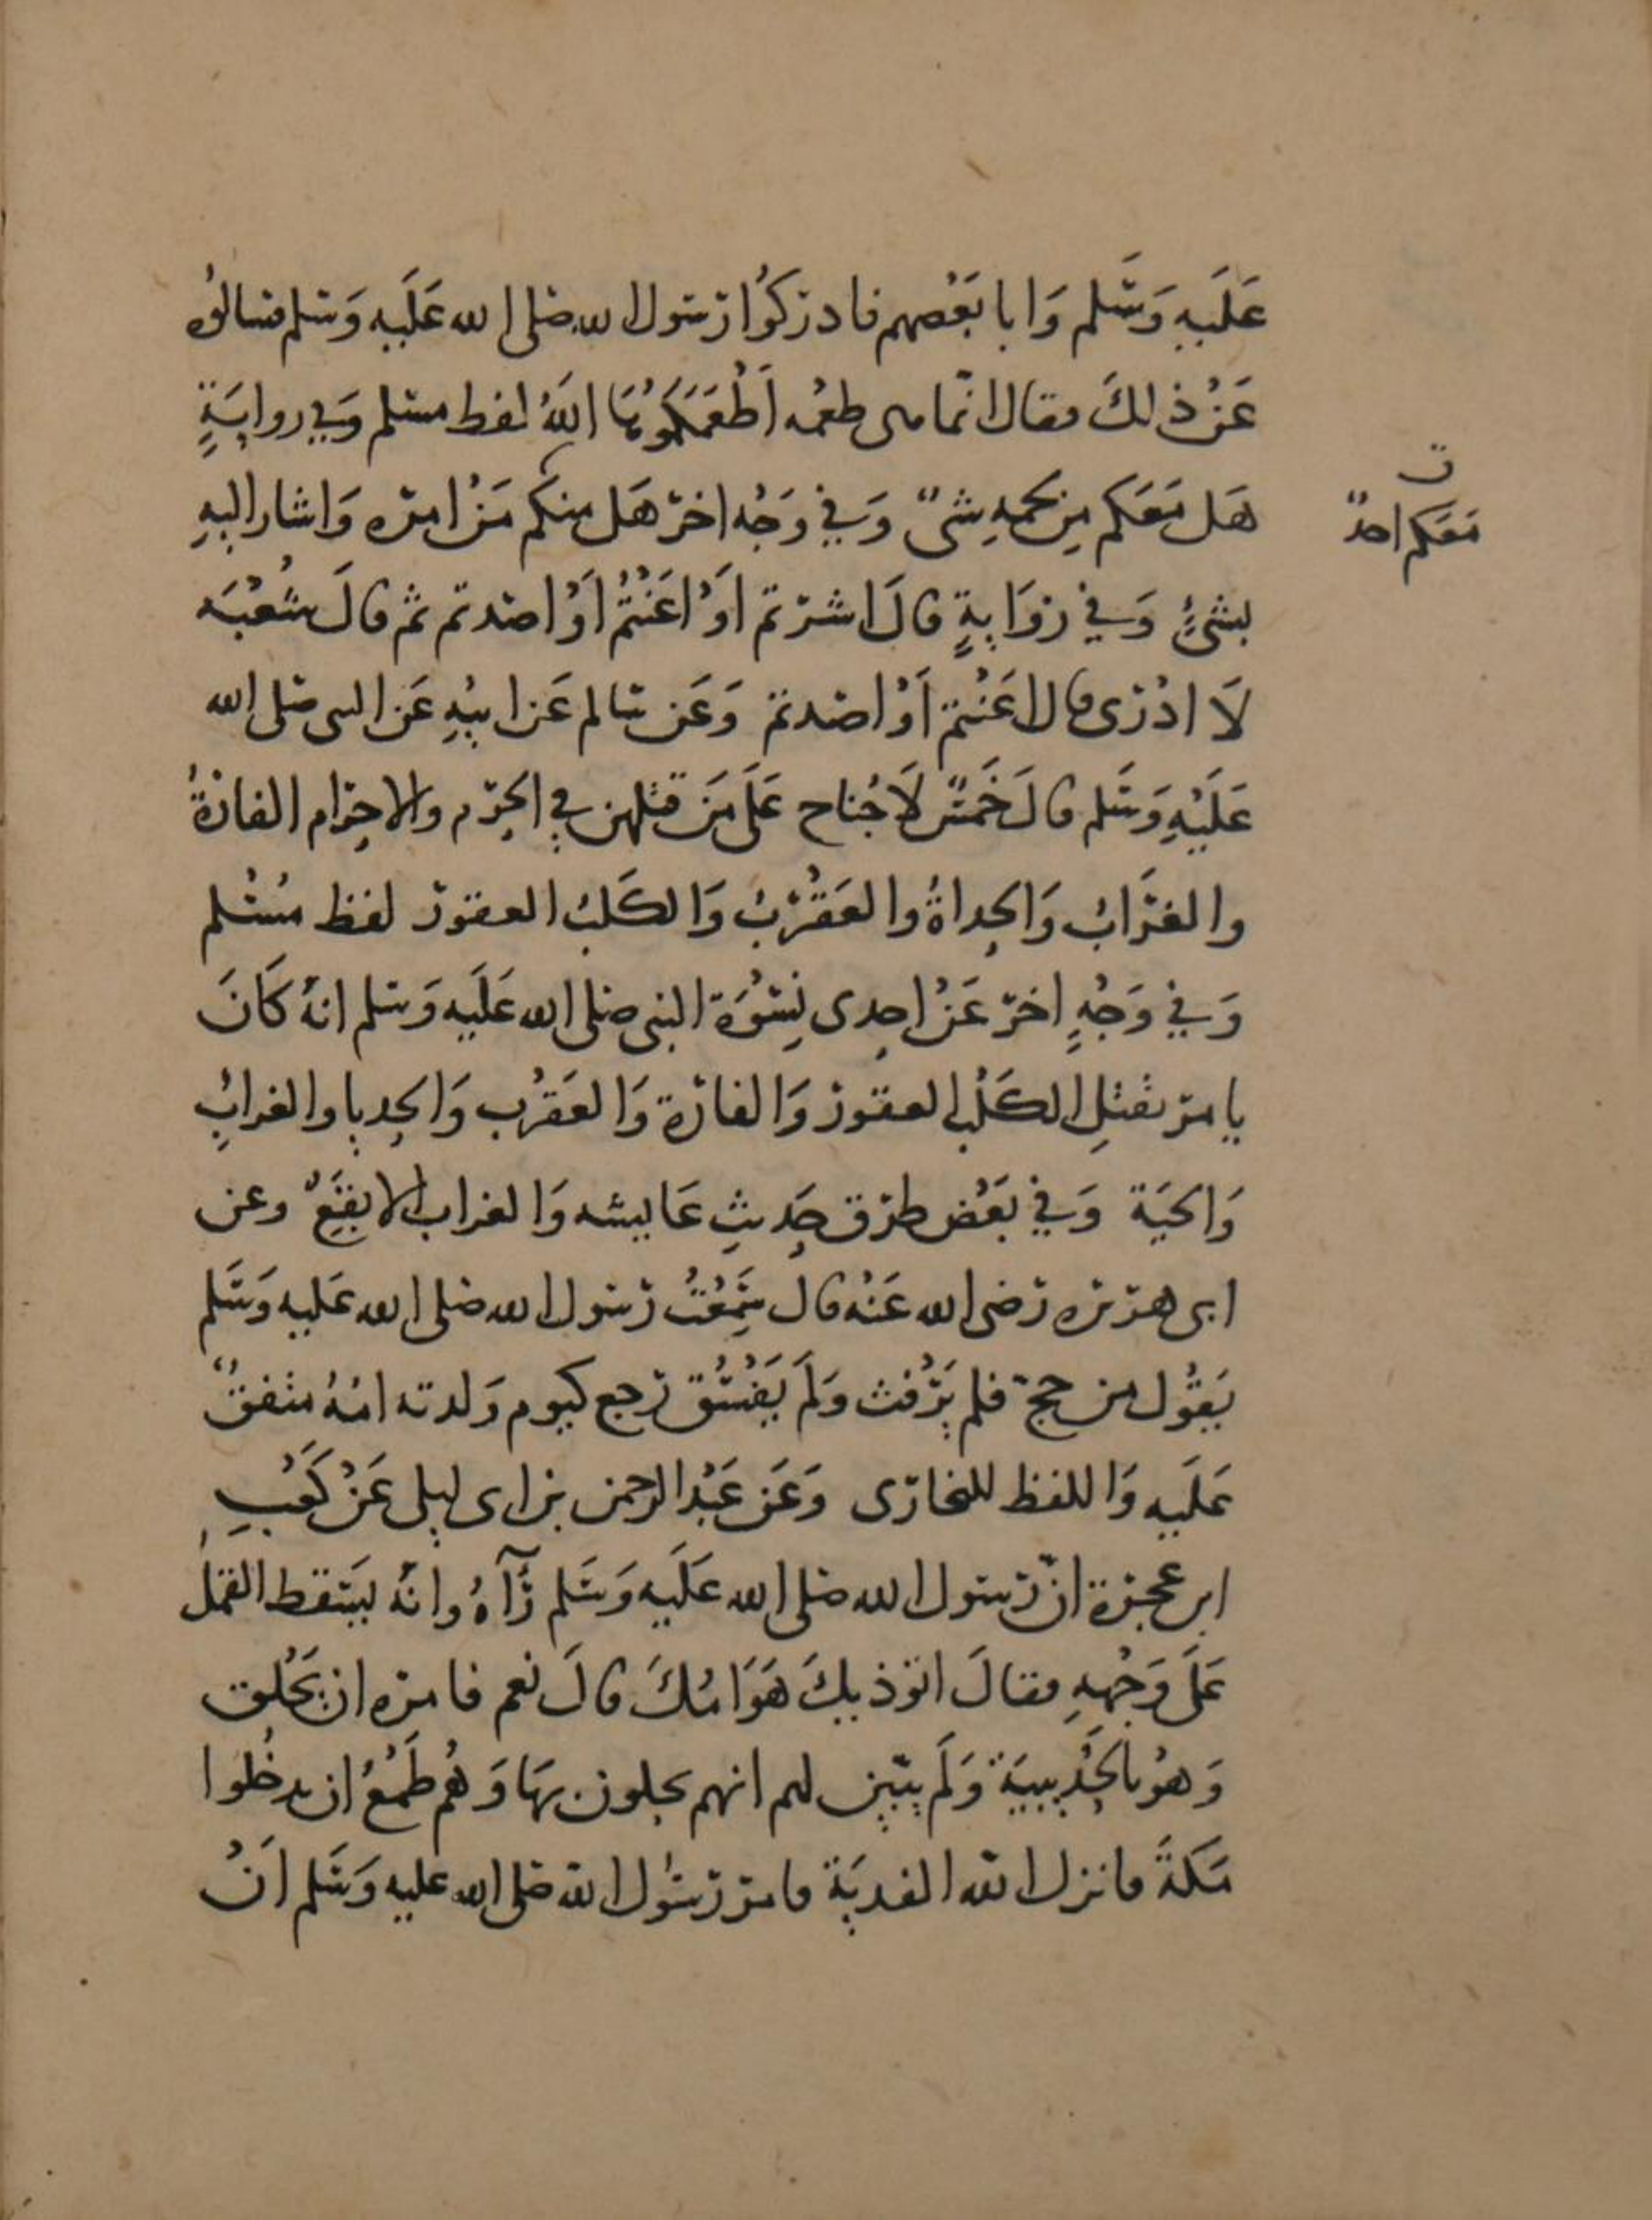 عَلَيهِ وَسَّلم وَابا بَعْضهم فادرَكُوا رَسُول الله صلى الله عَلَيهِ وَسلم فسالوُه
عَنْ ذلكَ فقال انّما هى طعمُه اَطْعَمَكمُوُهَا اللَّهُ لفظ مسلم وَفي روايَةٍ
هَل مَعَكم مِن لحمهِ شىٌ وَفي وَجْه اخر هَل منكم مَنْ امره وَاشار اليهِ
بشئٍ وَفي رِوَايةٍ قالَ اشرتم اَوْ اَعَنْتُمْ اَوْ اصَدتم ثم قالَ شُعْبَه
لَا ادْرى قال اعَنْتم اَوْ اصَدتم وَعَن سَالم عَن ابيْهِ عَن النبى صَلى الله
عَلَيْهِ وَسَلم قالَ خَمْسٌ لَا جُناح عَلَى مَن قتلهن فِي الحَرَم والاحِرَام الفارَةُ
والغرَابُ وَالحِداةُ والعَقْرَبُ وَالكَلبُ العقور لفظ مُسْلم
وَفي وَجْهٍ اخر عَنْ احِدى نِسْوَة النبى صَلى الله عَلَيه وَسلم انهُ كَانَ
يامر بقتلِ الكَلْب العقور وَالفارَة وَالعَقرُب وَالحِديا والغرابُِ
وَالحَيَة وَفي بَعْض طرق حَدِيثِ عَايشه وَالغراب الابقَعِ وعن
ابى هريره رَضى الله عَنْه قال سَمِعْتُ رَسُول الله صَلى الله عَليه وَسَلم
يَقُول من حج فلم يَرْفث وَلَم يَفْسُق رَجع كيوم وَلدته امُهُ متفقٌ
عَلَيه وَاللفظ للبخارى وَعَن عَبْد الرحمن بن ابى ليلى عَنْ كَعْبِ
ابن عجرة انّ رَسول الله صَلى الله عَلَيه وَسَلم رَآهُ وانهُ ليَسقط القمَل
عَلَى وَجْههِ فقالَ اتوذيكَ هَوَامُكَ قالَ نعم فامره ان يَحْلق
وَهوُ بالحُدَيبيَة وَلَم يتبَين لهم انهم يحلون بهَا وَهُم طَمَعُ ان يدخُلوا
مَكةَ فانزل الله الفديَة فامر رَسُول الله صَلى الله عليه وَسَلم اَنْ
ن
مَعَكم احدٌ